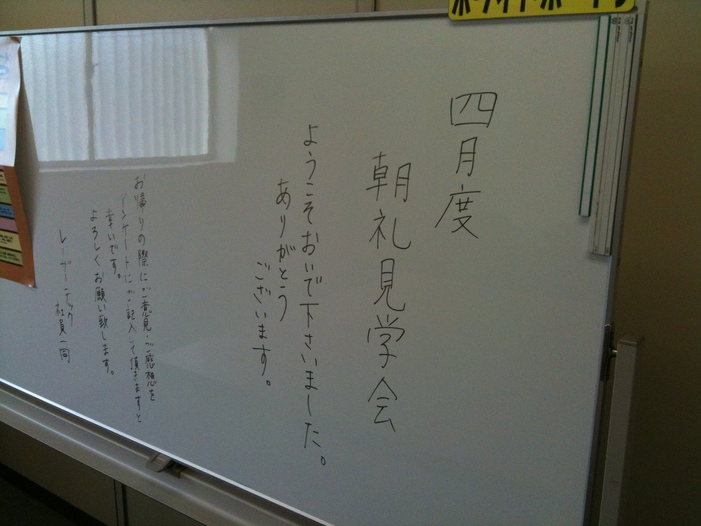 四月度
朝礼見学会
ようこそおいで下さいました。
ありがとう
ございます。
お帰りの際にご意見・ご感想を
アンケートにご記入して頂きますと
幸いです。
よろしくお願い致します。
レーザーテック
社員一同
ホワイトボード